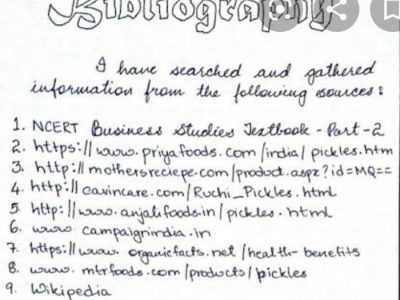 Bibliography
I have searched and gathered
information from the following sources:
1. NCERT Business Studies Textbook - Part-2
2. https://www.priyafoods.com/india/pickles.htm
3. http://mothersreciepe.com/product.aspx?id=MQ==
4. http://cavincare.com/Ruchi_Pickles.html
5. http://www.anjalifoods.in/pickles.html
6. www.campaignindia.in
7. https://www.organicfacts.net/health-benefits
8. www.mtrfoods.com/products/pickles
9. Wikipedia